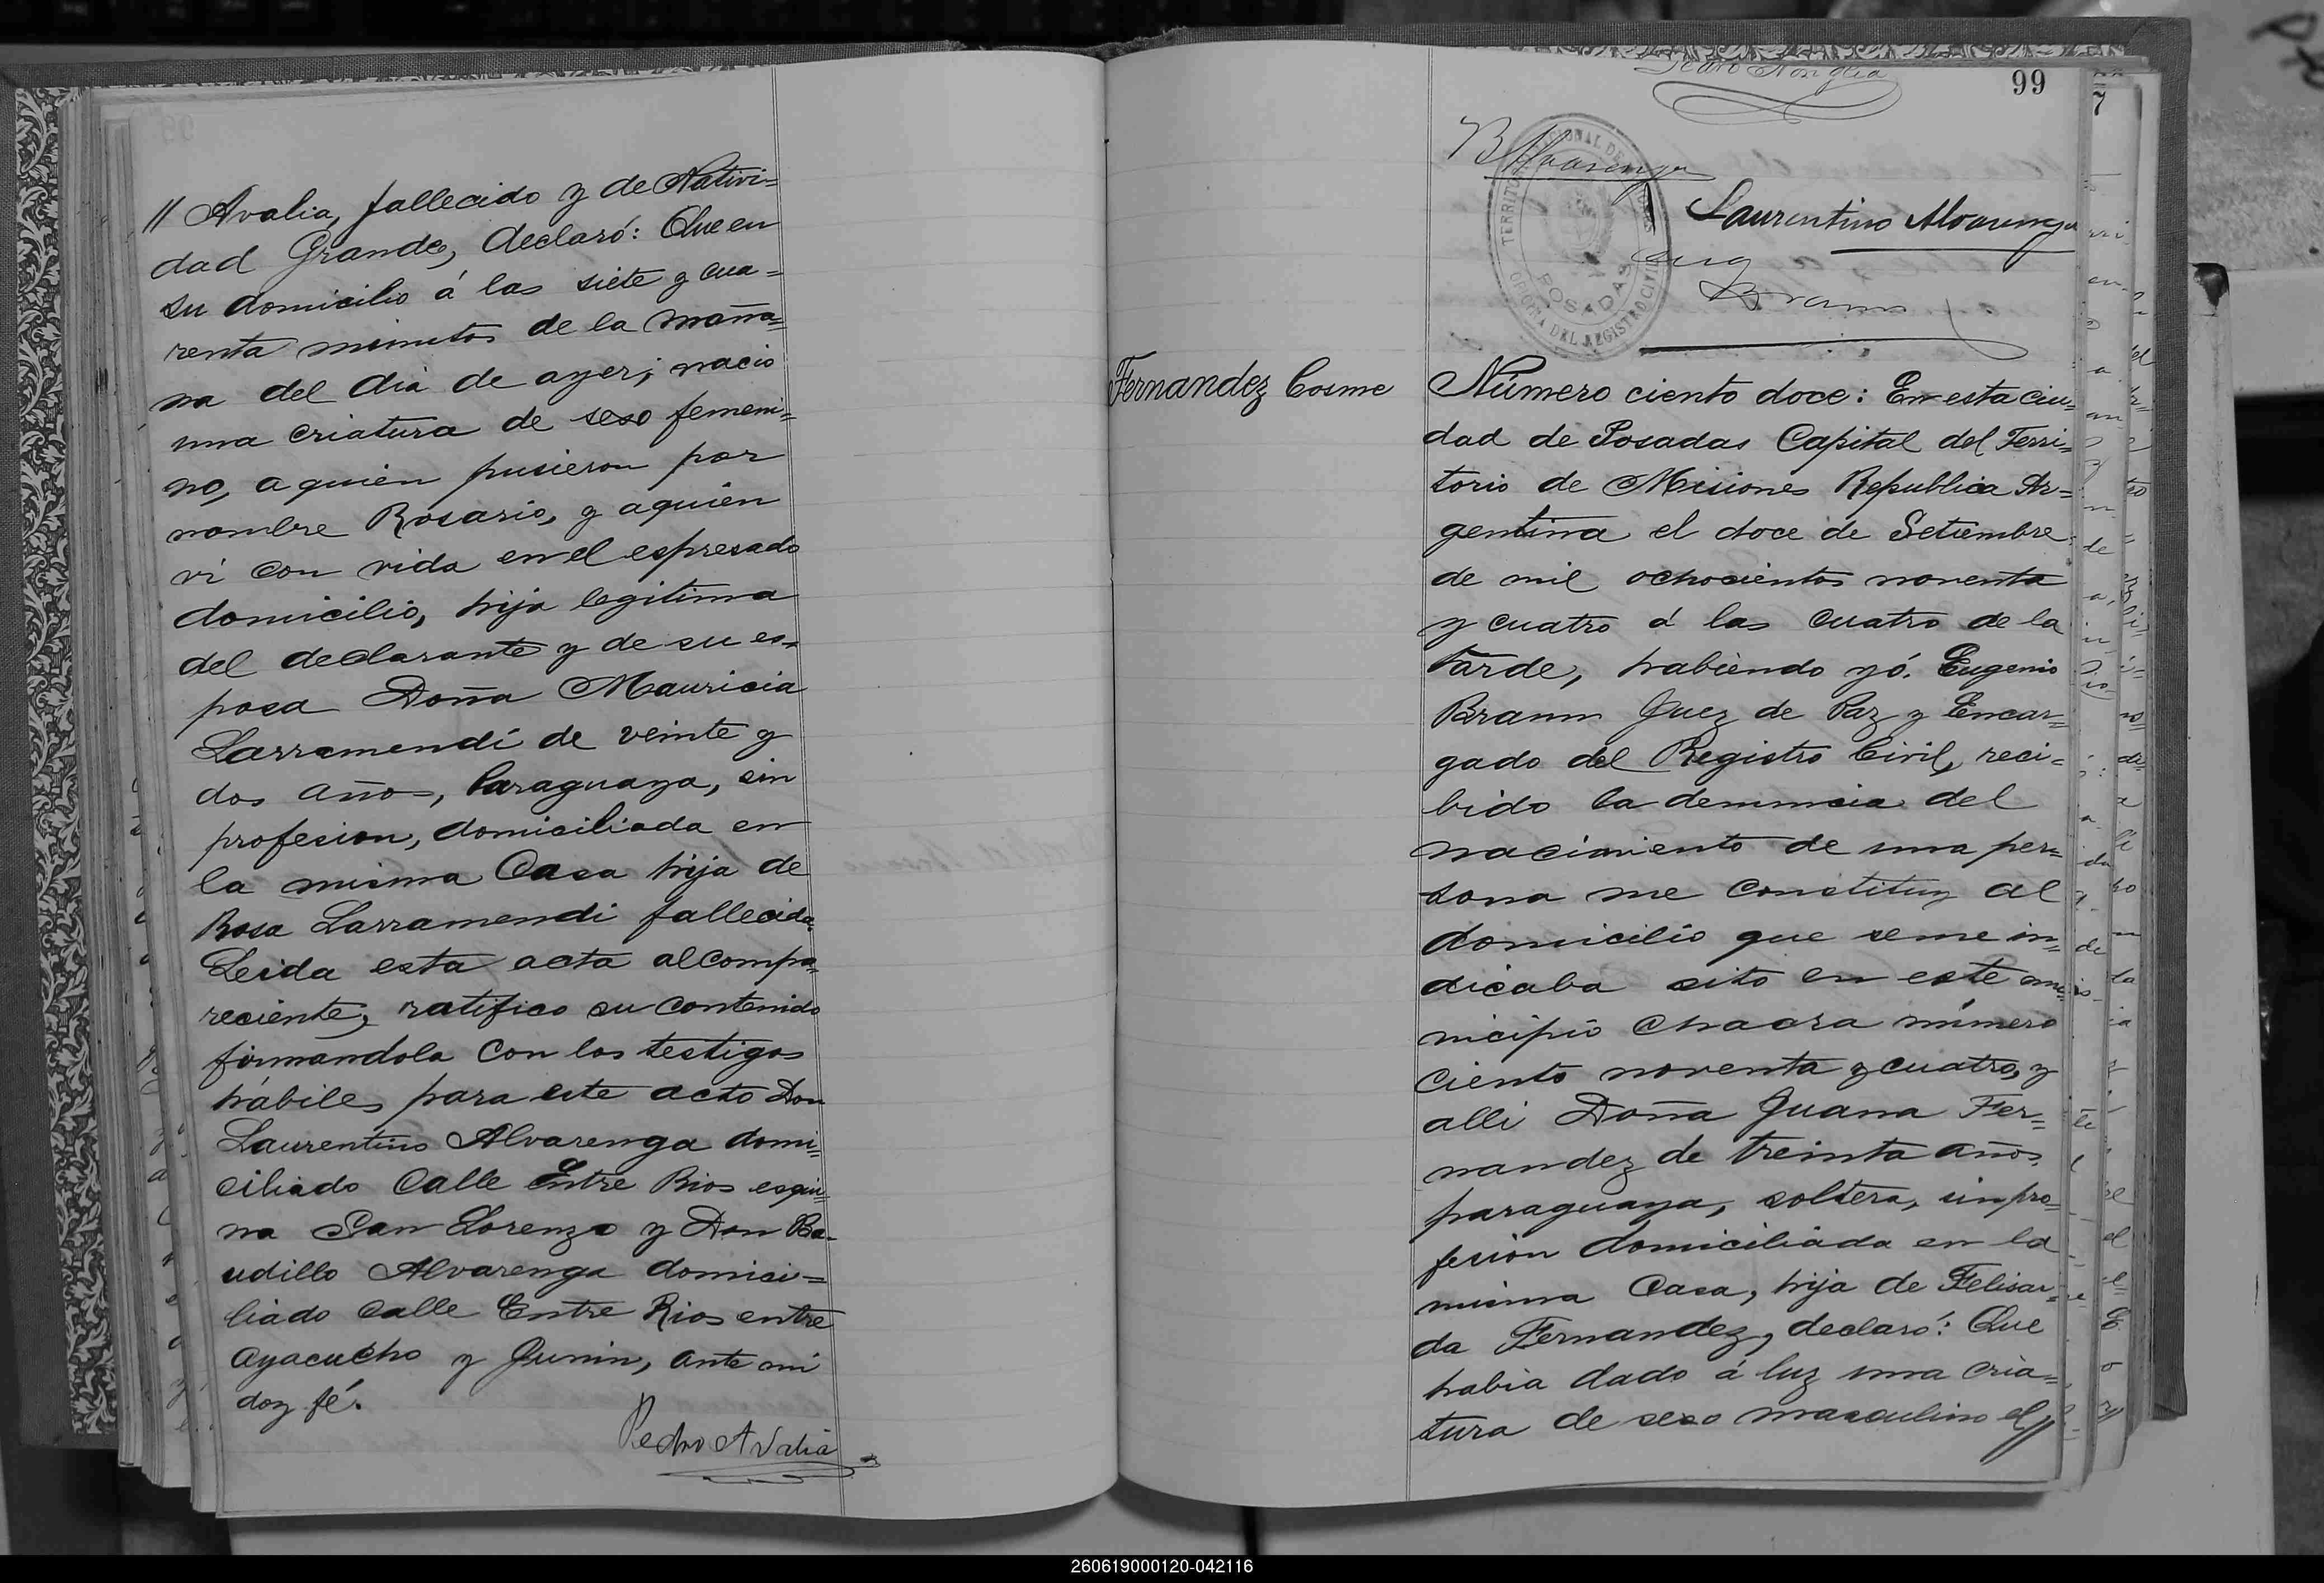 // Avalia, fallecido y de Nativi=
dad Grande, declaró: Que en
su domicilio á las siete y cua=
renta minutos de la maña=
na del dia de ayer; nació
una criatura de sexo femeni=
no, a quien pusieron por
nombre Rosario, y a quien
ví con vida en el espresado
domicilio, hija legitima
del declarante y de su es=
posa Doña Mauricia
Larramendí de veinte y
dos años, Paraguaya, sin
profesion, domiciliada en
la misma Casa hija de
Rosa Larramendi fallecida.
Leida esta acta al compa=
reciente, ratifico su contenido
firmandola con los testigos
hábiles para este acto Don
Laurentino Alvarenga domi=
ciliado Calle Entre Rios esqui=
na San Lorenzo y Don Ba=
udillo Alvarenga domici=
liado Calle Entre Rios entre
Ayacucho y Junin, ante mi
doy fé.
Pedro Avalia
99
7
B Alvarenga
TERRITORIO NACIONAL DE MISIONES
POSADAS
OFICINA DEL REGISTRO CIVIL
Laurentino Alvarenga
Eug
Braun
Fernandez Cosme
Número ciento doce: En esta ciu=
dad de Posadas Capital del Terri=
torio de Misiones Republica Ar=
gentina el doce de Setiembre
de mil ochocientos noventa
y cuatro á las cuatro de la
tarde, habiendo yó. Eugenio
Braun Juez de Paz y Encar=
gado del Registro Civil, reci=
bido la denuncia del
nacimiento de una per=
sona me constituy al
domicilio que se me in=
dicaba sito en este mu=
nicipio Chacra número
ciento noventa y cuatro, y
alli Doña Juana Fer=
nandez de treinta años,
paraguaya, soltera, sin pro=
fesion domiciliada en la
misma Casa, hija de Felisar=
da Fernandez, declaró: Que
habia dado á luz una cria=
tura de sexo masculino el //
260619000120-042116